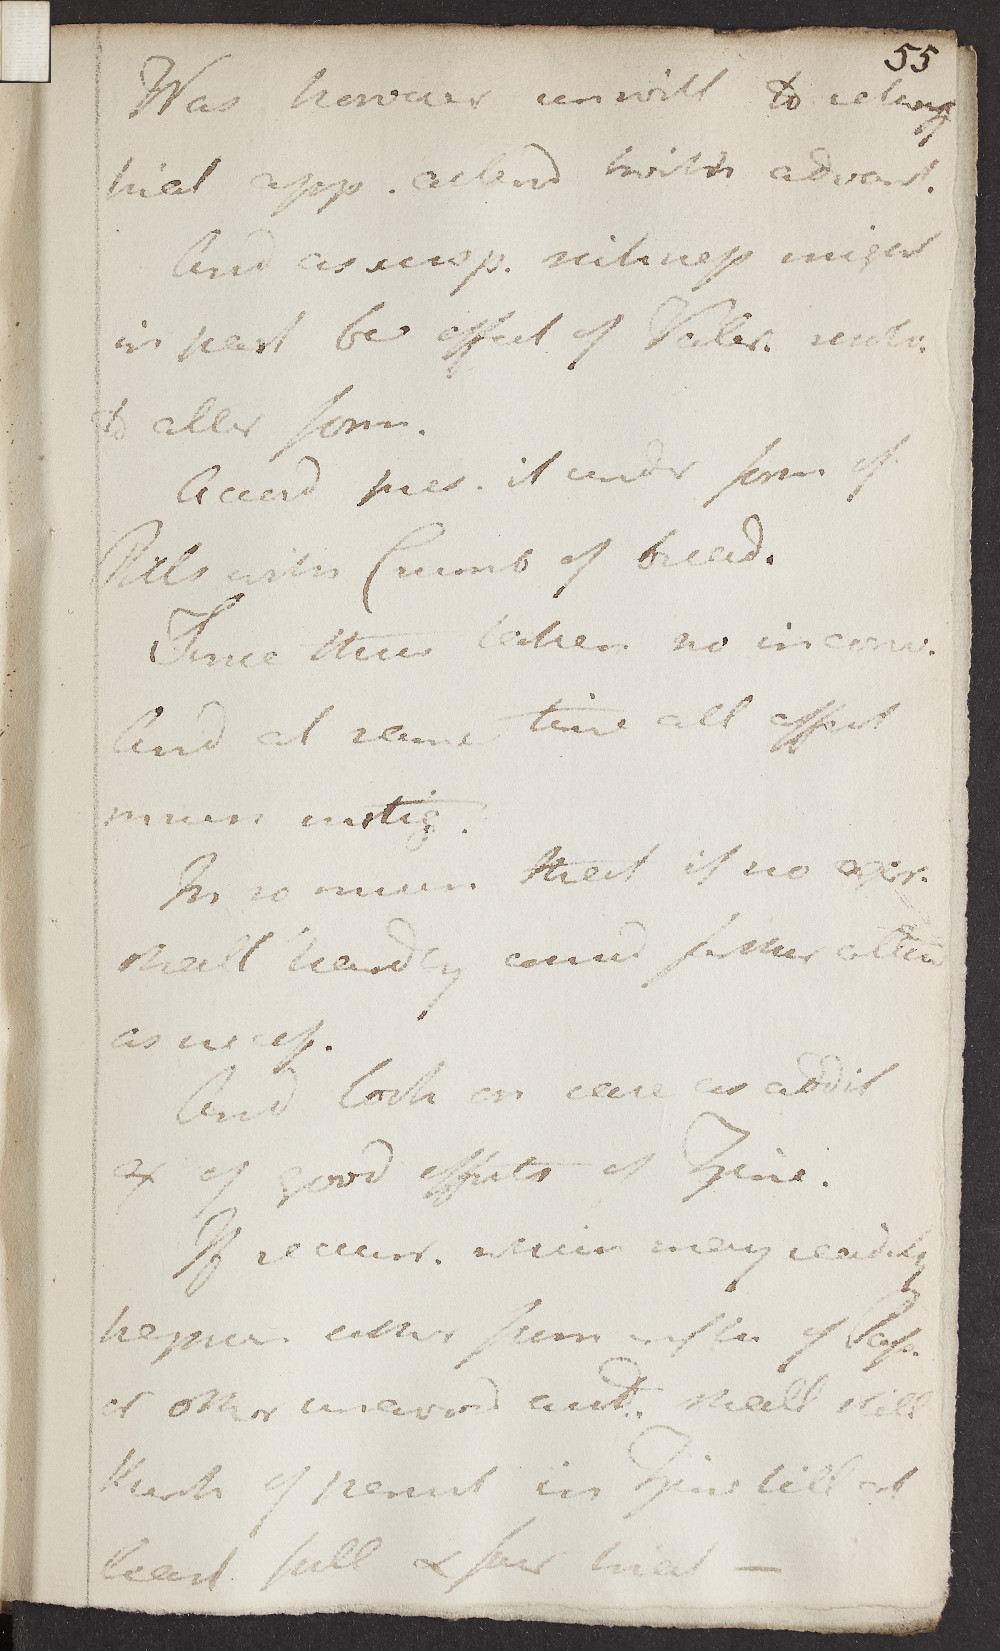 55
Was however unwill to relinq
trial app. attend with advant.
And as resp. sickness might
in part be effect of Valer. reolv.
to alter form.
Accord pres. it under form of
Pills with Crumb of bread.
Since thus taken no inconv.
And at same time all affect
much mitig.
In so much that if no exer.
shall hardly consid farther atten
as necess.
And look on case as addit
ex of good effects of Zinc.
If recurr. which may readily
happen either from influ of Pass.
or other unavoid caus. shall still
think of persist in Zinc till at
least full & fair trial —